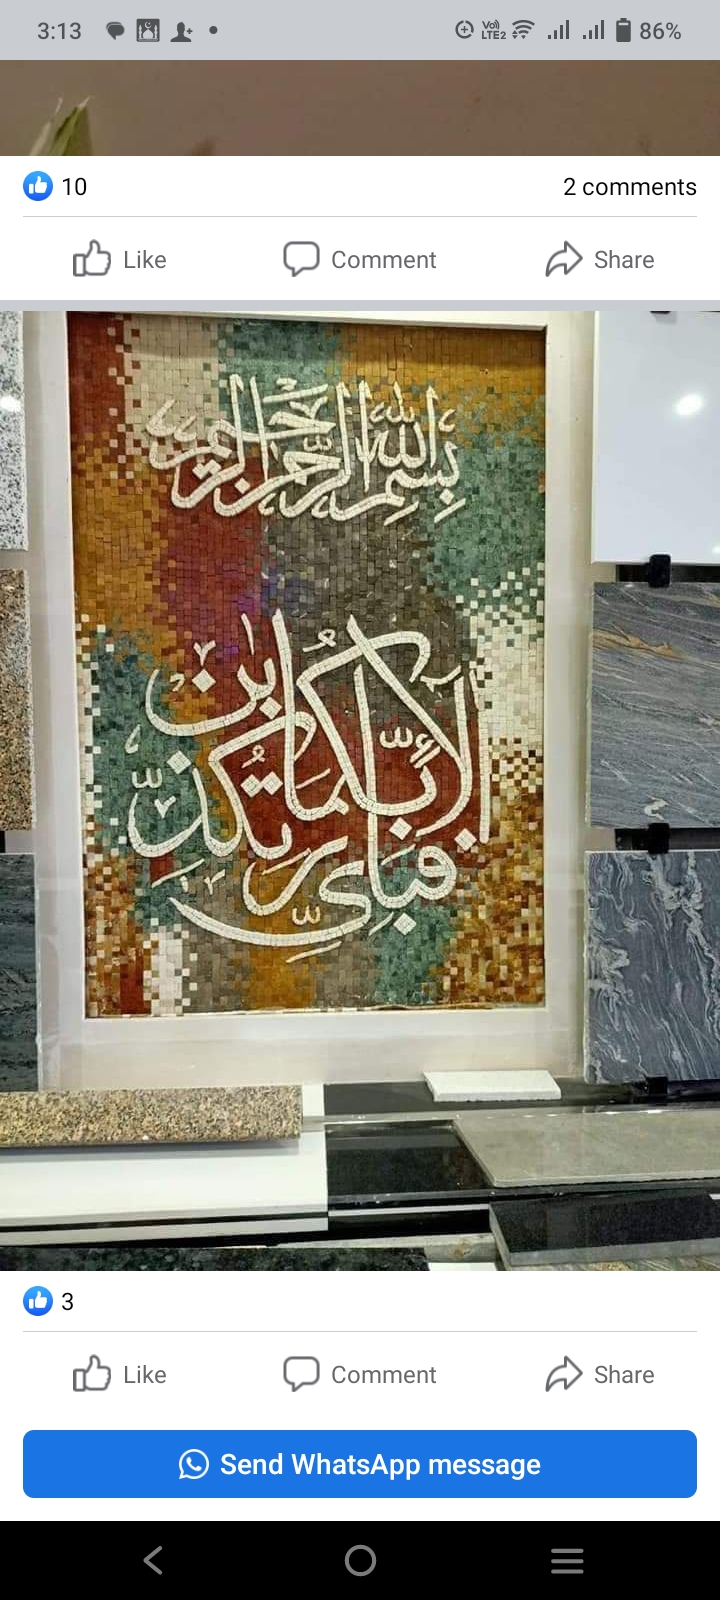 3:13
Vo)) LTE2 86%
10 2 comments
Like Comment Share
بسم الله الرحمن الرحيم
فبأي آلاء ربكما تكذبان
3
Like Comment Share
Send WhatsApp message